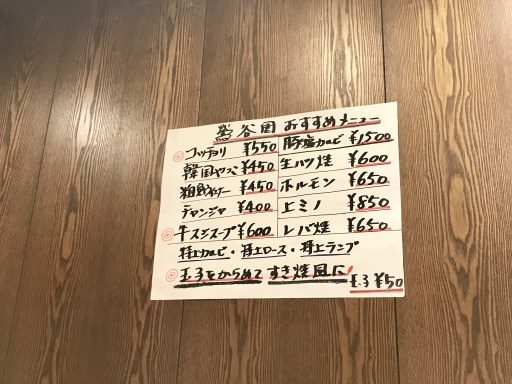 鶯谷園 おすすめメニュー
コッチョリ ¥550
韓国やっこ ¥450
粗挽きウインナー ¥450
チャンジャ ¥400
牛スジスープ ¥600
豚塩カルビ ¥1500
生ハツ焼 ¥600
ホルモン ¥650
上ミノ ¥850
レバ焼 ¥650
特上カルビ・特上ロース・特上ランプ
玉子をからめて すき焼風に!
玉子 ¥50